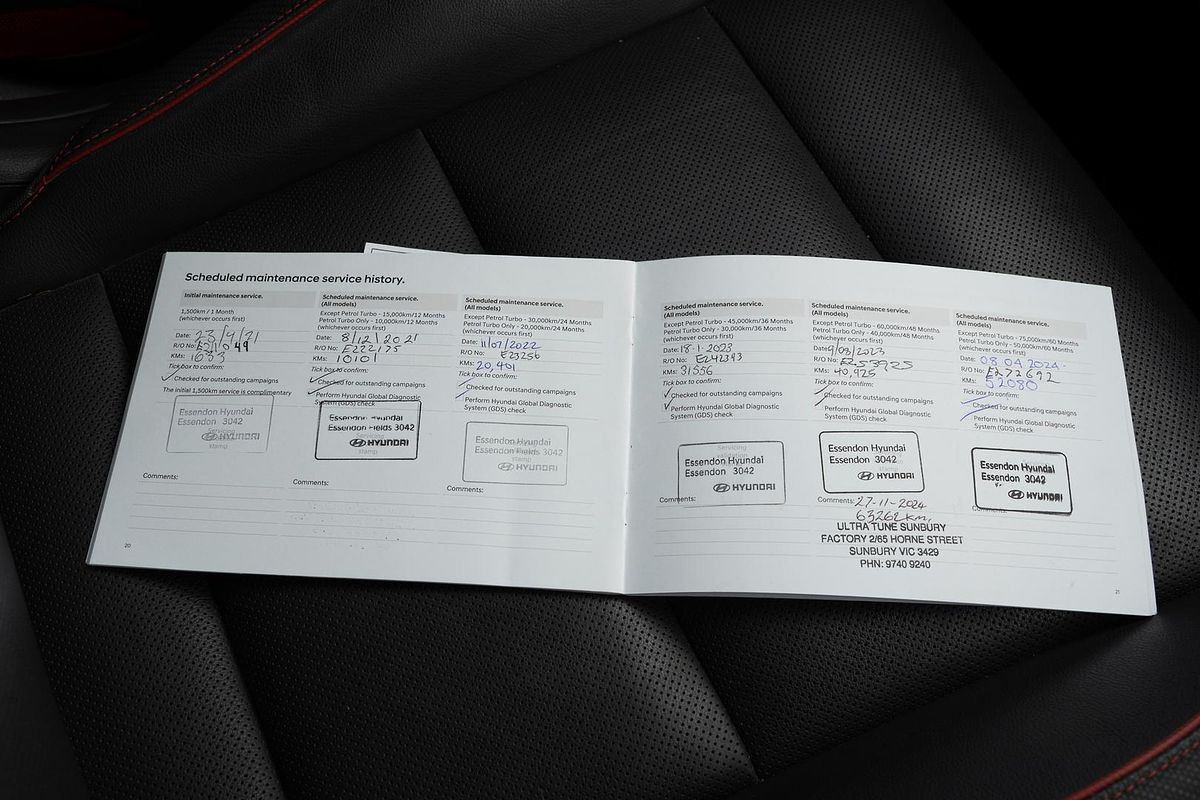 Scheduled maintenance service history.
Initial maintenance service.
1,500km / 1 Month
(whichever occurs first)
Date: 23/4/21
R/O No:
KMs: 1633
Tick box to confirm:
Checked for outstanding campaigns
The initial 1,500km service is complimentary
Essendon Hyundai
Essendon 3042
HYUNDAI
stamp
Comments:
20
Scheduled maintenance service.
(All models)
Except Petrol Turbo - 15,000km/12 Months
Petrol Turbo Only - 10,000km/12 Months
(whichever occurs first)
Date: 8/12/2021
R/O No: E222175
KMs: 10101
Tick box to confirm:
Checked for outstanding campaigns
Perform Hyundai Global Diagnostic
System (GDS) check
Essendon Hyundai
Essendon Fields 3042
HYUNDAI
stamp
Comments:
Scheduled maintenance service.
(All models)
Except Petrol Turbo - 30,000km/24 Months
Petrol Turbo Only - 20,000km/24 Months
(whichever occurs first)
Date: 11/07/2022
R/O No: E23256
KMs: 20,401
Tick box to confirm:
Checked for outstanding campaigns
Perform Hyundai Global Diagnostic
System (GDS) check
Essendon Hyundai
Essendon Fields 3042
HYUNDAI
stamp
Comments:
Scheduled maintenance service.
(All models)
Except Petrol Turbo - 45,000km/36 Months
Petrol Turbo Only - 30,000km/36 Months
(whichever occurs first)
Date: 18-1-2023
R/O No: E242393
KMs: 31556
Tick box to confirm:
Checked for outstanding campaigns
Perform Hyundai Global Diagnostic
System (GDS) check
Servicing
Essendon Hyundai
Essendon 3042
HYUNDAI
Comments:
Scheduled maintenance service.
(All models)
Except Petrol Turbo - 60,000km/48 Months
Petrol Turbo Only - 40,000km/48 Months
(whichever occurs first)
Date: 9/08/2023
R/O No: E253925
KMs: 40,925
Tick box to confirm:
Checked for outstanding campaigns
Perform Hyundai Global Diagnostic
System (GDS) check
Essendon Hyundai
Essendon 3042
HYUNDAI
Comments: 27-11-2024
63262km,
ULTRA TUNE SUNBURY
FACTORY 2/65 HORNE STREET
SUNBURY VIC 3429
PHN: 9740 9240
Scheduled maintenance service.
(All models)
Except Petrol Turbo - 75,000km/60 Months
Petrol Turbo Only - 50,000km/60 Months
(whichever occurs first)
Date: 08.04.2024.
R/O No: E272692
KMs: 52080
Tick box to confirm:
Checked for outstanding campaigns
Perform Hyundai Global Diagnostic
System (GDS) check
Essendon Hyundai
Essendon 3042
HYUNDAI
21